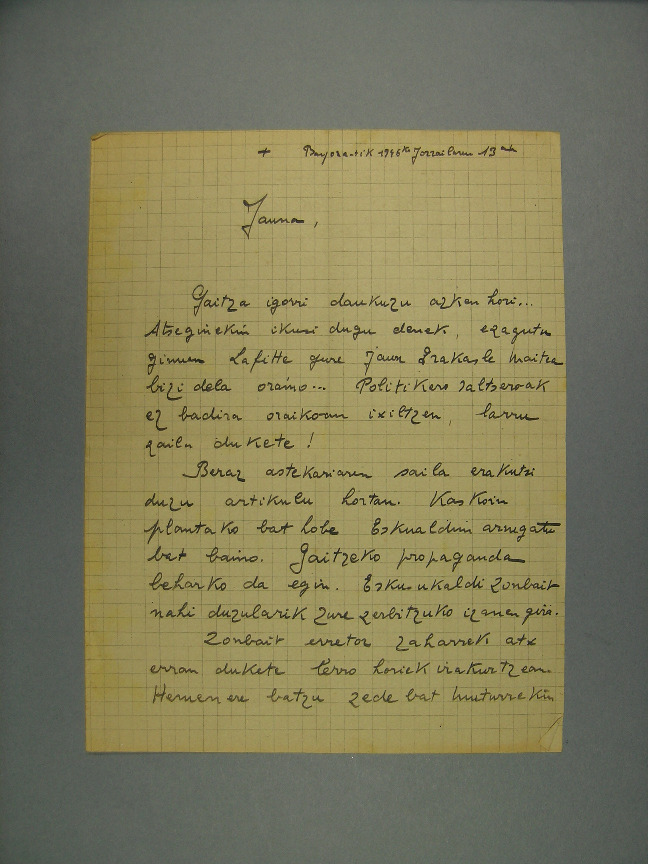 + Bayona-tik 1945ko Jorrailaren 13an
Jauna,
Gaitza igorri daukuzu azken hori...
Atseginekin ikusi dugu denek, ezagutu
ginuen Lafitte gure Jaun Irakasle maitea
bizi dela oraino... Politikero saltseroak
ez badira oraikoan ixiltzen, larru
gaila dukete!
Beraz astekariaren saila erakutsi
duzu artikulu hortan. Kaskoin
plantako bat hobe Eskualdun arnegatu
bat baino. Gaitzeko propaganda
beharko da egin. Esku-ukaldi zonbait
nahi duzularik zure zerbitzuko izanen gira.
Zonbait erretor zaharrek atx
erran dukete lerro horiek irakurtzean.
Hemen ere batzu zede bat muturrekin